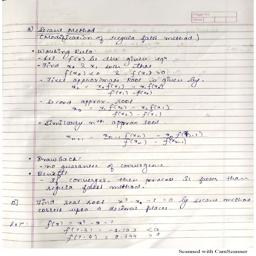 Secant Method
(Modification of regula falsi method)
• Working Rule
- Let f(x) be the given eqn
- Find x0 & x1 such that
f(x0) < 0 & f(x1) > 0
- First approximate root is given by
x2 = x0 f(x1) - x1 f(x0)
f(x1) - f(x0)
- Second approx. root
x3 = x1 f(x2) - x2 f(x1)
f(x2) - f(x1)
- Similarly nth approx root
xn+1 = xn-1 f(xn) - xn f(xn-1)
f(xn) - f(xn-1)
• Drawback:
- no guarantee of convergence
• Benefit:
- If converges, then process is faster than
regula falsi method.
Q) Find real root by secant method
correct upto decimal places.
Scanned with CamScanner